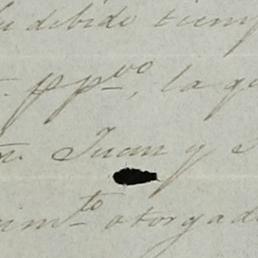 su debido tiemp
ppvo, la qu
Juan y
imto otorgad